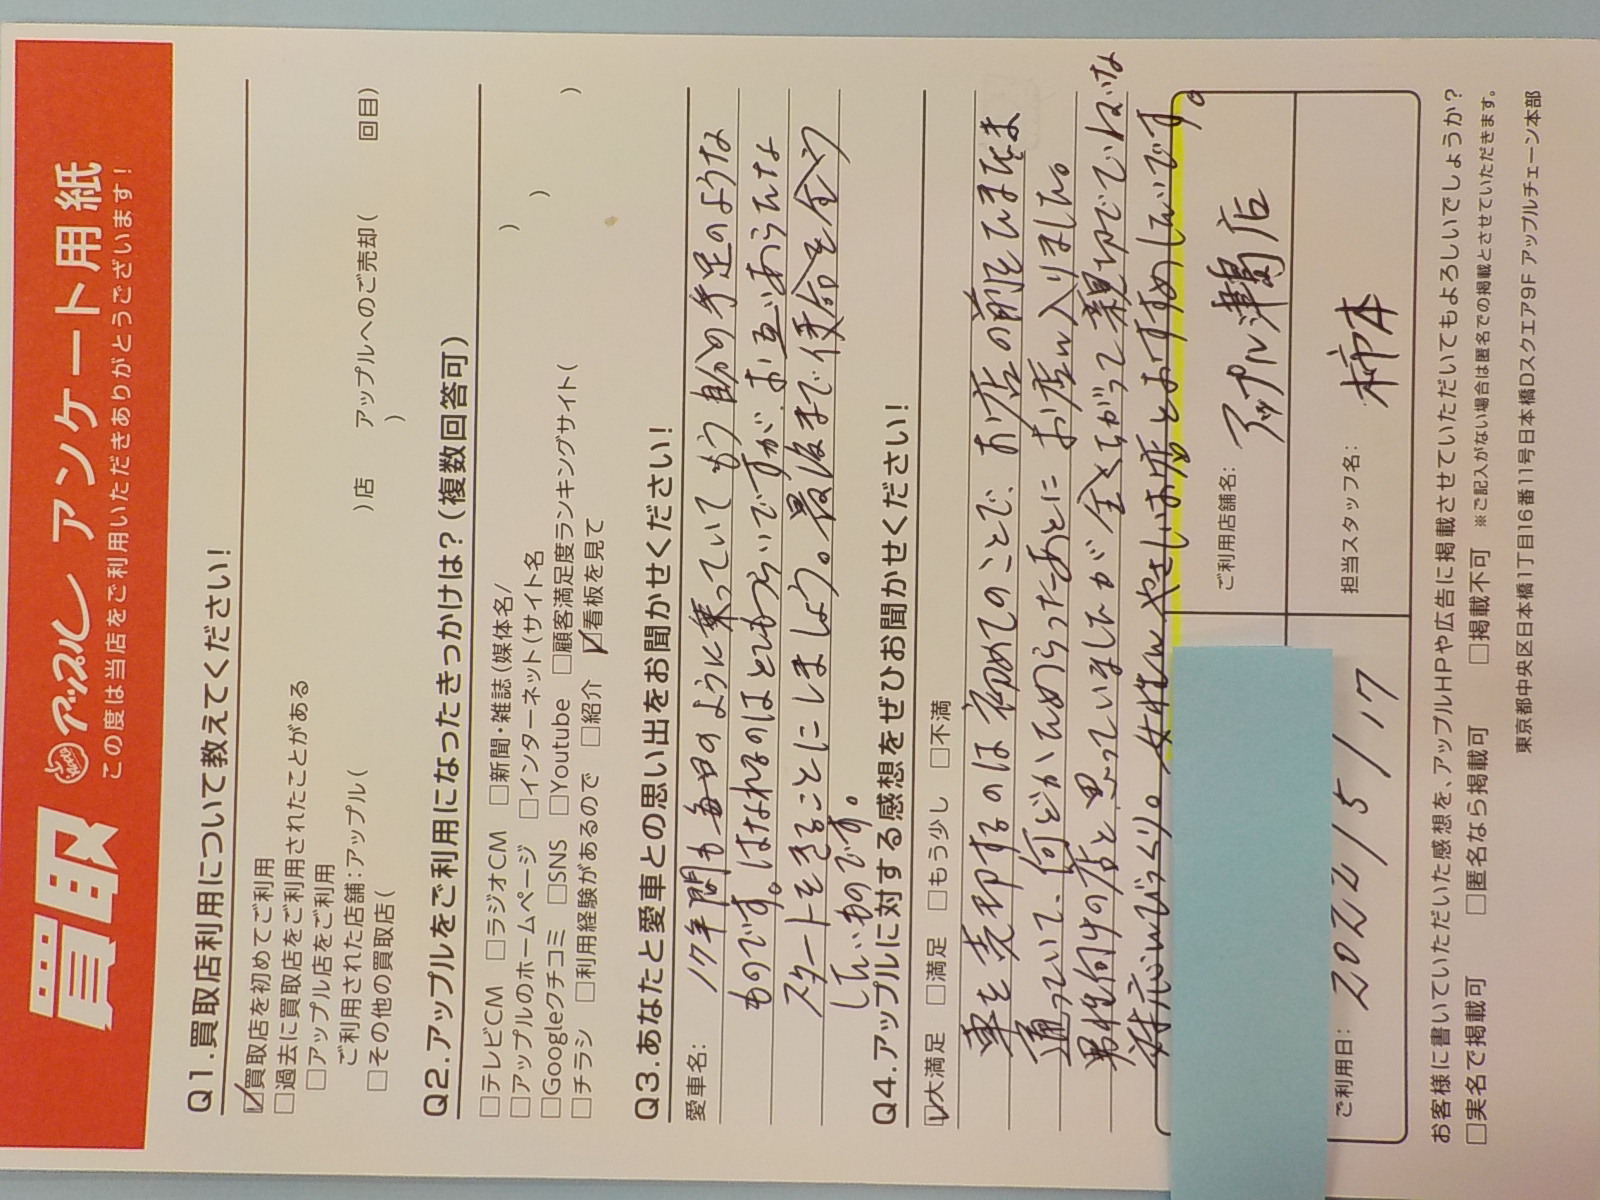 買取 アップル アンケート用紙
この度は当店をご利用いただきありがとうございます!
Q1.買取店利用について教えてください!
☑買取店を初めてご利用
□過去に買取店をご利用されたことがある
□アップル店をご利用
ご利用された店舗:アップル( )店 アップルへのご売却( 回目)
□その他の買取店( )
Q2.アップルをご利用になったきっかけは?(複数回答可)
□テレビCM □ラジオCM □新聞・雑誌(媒体名/ )
□アップルのホームページ □インターネット(サイト名 )
□Googleクチコミ □SNS □Youtube □顧客満足度ランキングサイト( )
□チラシ □利用経験があるので □紹介 ☑看板を見て
Q3.あなたと愛車との思い出をお聞かせください!
愛車名:
17年間も毎日のように乗っていてもう自分の手足のような
ものです。はなれるのはとてもつらいですが、お互いあらたな
スタートをきることにしましょう。最後まで使命を全う
したいものです。
Q4.アップルに対する感想をぜひお聞かせください!
☑大満足 □満足 □満足 □もう少し □不満
車を売却するのは初めてのことで、お店の前をひまでま
通っていて、何どか ためらったあとにお店に入りました。
男性向けの店と思っていましたが全くちがって親切でていねいな
対応にびっくり。女性にやさしいお店とおすすめしたいです。
ご利用店舗名: アップル津島店
担当スタッフ名: 柿本
ご利用日: 2022/5/17
お客様に書いていただいた感想を、アップルHPや広告に掲載させていただいてもよろしいでしょうか?
□実名で掲載可 □匿名なら掲載可 □掲載不可 ※ご記入がない場合は匿名での掲載とさせていただきます。
東京都中央区日本橋1丁目16番11号日本橋Dスクエア9F アップルチェーン本部